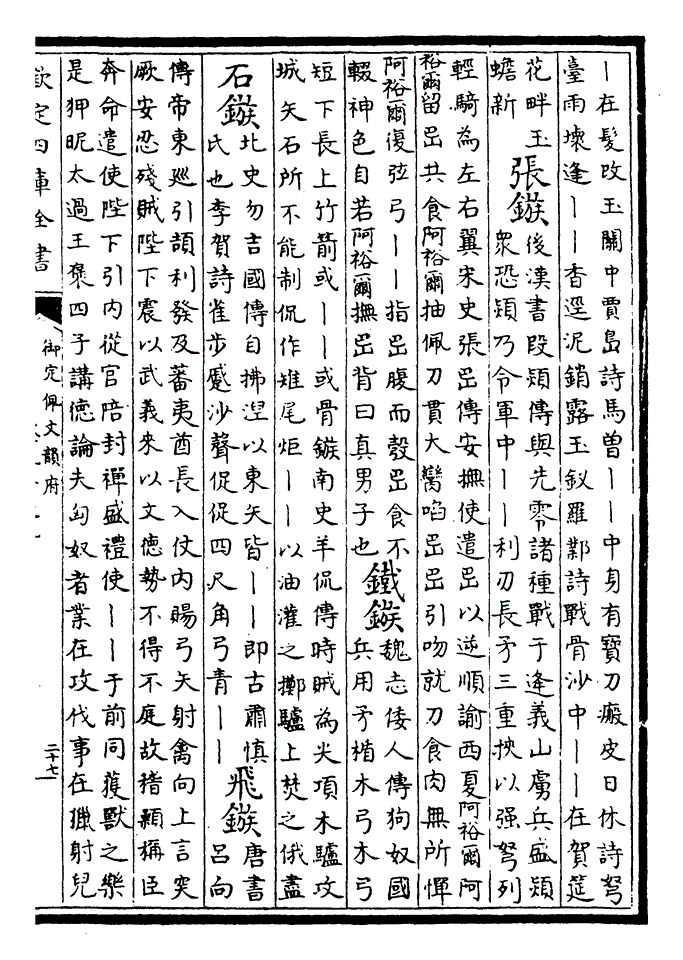 丨在髮改玉關中賈島詩馬曾丨丨中身有寶刀瘢皮日休詩弩
臺雨壞逢丨丨香逕泥銷露玉釵羅鄴詩戰骨沙中丨丨在賀筵
花畔玉
蟾新
張鏃
後漢書段熲傳與先零諸種戰于逢義山虜兵盛熲
衆恐熲乃令軍中丨丨利刃長矛三重挾以强弩列
輕騎為左右翼宋史張岊傳安撫使遣岊以逆順諭西夏阿裕爾阿
裕爾留岊共食阿裕爾抽佩刀貫大臠啗岊岊引吻就刀食肉無所憚
阿裕爾復弦弓丨丨指岊腹而彀岊食不
輟神色自若阿裕爾撫岊背曰真男子也
鐵鏃
魏志倭人傳狗奴國
兵用矛楯木弓木弓
短下長上竹箭或丨丨或骨鏃南史羊侃傳時賊為尖項木驢攻
城矢石所不能制侃作雉尾炬丨丨以油灌之擲驢上焚之俄盡
石鏃
北史勿吉國傳自拂涅以東矢皆丨丨即古肅慎
氏也李賀詩雀步蹙沙聲促促四尺角弓青丨丨
飛鏃
唐書
呂向
傳帝東巡引頡利發及蕃夷酋長入仗内賜弓矢射禽向上言突
厥安忍殘賊陛下震以武義來以文德勢不得不庭故稽顙稱臣
奔命遣使陛下引内從官陪封禪盛禮使丨丨于前同獲獸之樂
是狎昵太過王褒四子講德論夫匈奴者業在攻伐事在獵射兒
欽定四庫全書
御定佩文韻府
二十七